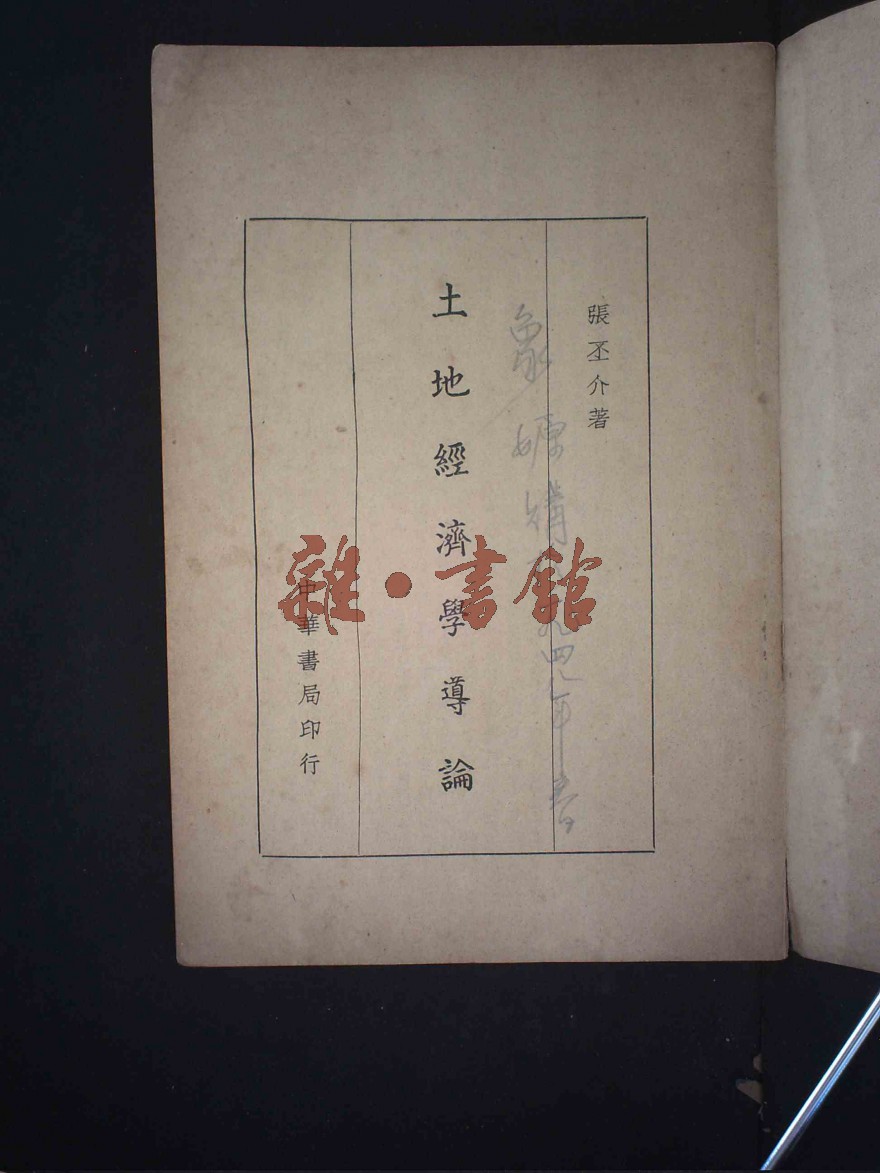 張丕介著
土地經濟學導論
中華書局印行
雜·書館